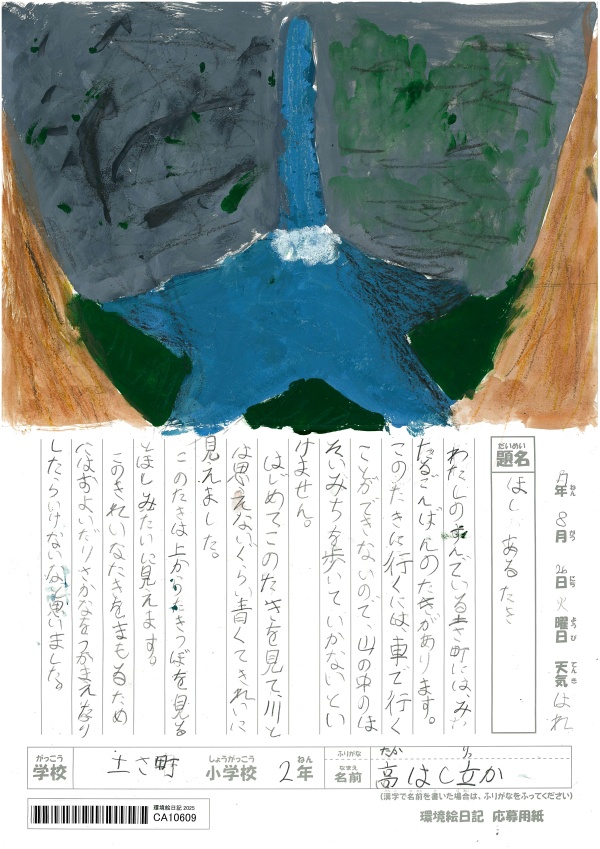 7年 8月 26日 火曜日 天気 はれ
ねん がつ にち ようび てんき
だいめい
題名
ほし あるたき
わたしのすんでいる土さ町には、み
たるごんげんのたきがあります。
このたきに行くには、車で行く
ことができないので、山の中のほ
そいみちを歩いていかないとい
けません。
はじめてこのたきを見て、川と
は思えないぐらい青くてきれいに
見えました。
このたきは上からたきつぼを見る
とほしみたいに見えます。
このきれいなたきをまもるため
にはすよいたりさかなをつかまえたり
したらいけないなと思いました。
がっこう
学校
土さ町
しょうがっこう
小学校
2年
ねん
ふりがな
たか りっ
なまえ
名前
高はし立か
(漢字で名前を書いた場合は、ふりがなをふってください)
環境絵日記 2025
CA10609
環境絵日記 応募用紙